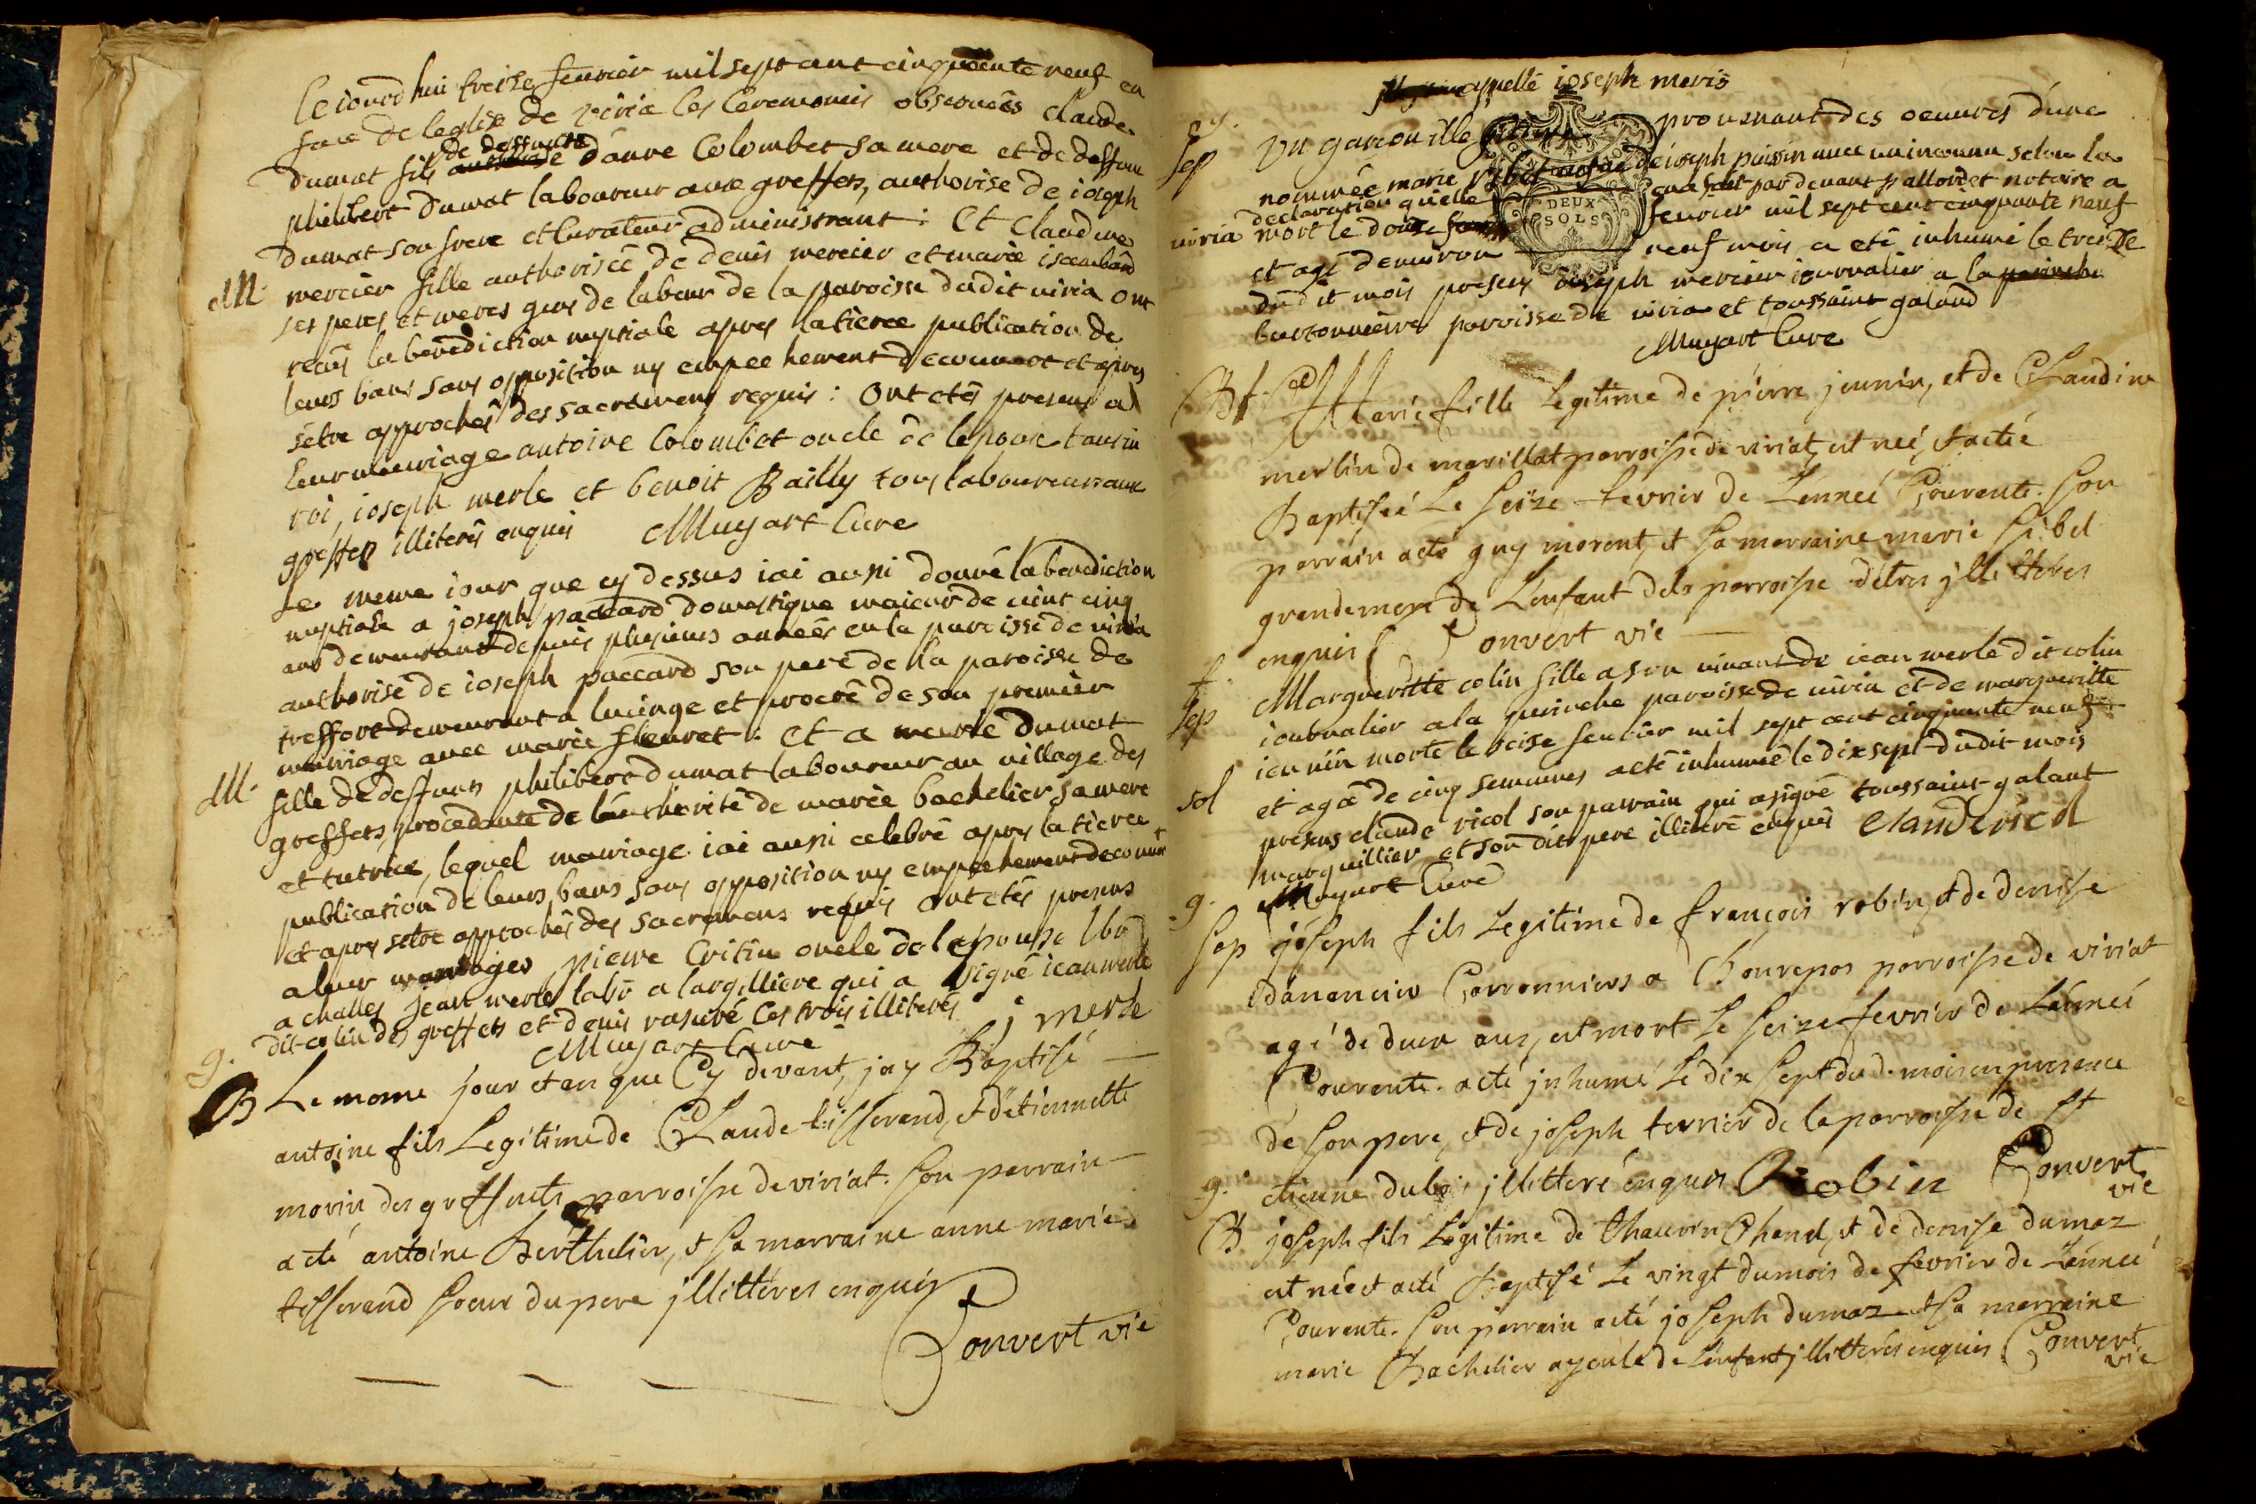 Ce iourdhui treize feuvrier mil sept cent cinquante neuf en
face de leglise de viria les ceremonies observées claude
dumat fils de deffunte d'anne Colombet sa mere et de deffunt
philibert dumat laboureur aux greffets, authorise de ioseph
dumat son frere et curateur administrant : Et claudine
M. mercier fille authorisée de denis mercier et marie
ses peres et meres gens de labeur de la paroisse dudit viria ont
reçus la benediction nuptiale apres la tierce publication de
leurs bans sans opposition ny empechement decouvert et apres
sètre approchés des sacremens requis : ont etés presens a
leur mariage antoine Colombet oncle de lepoux taurin
roi, ioseph merle et benoit Bailly tous laboureurs aux
greffets illiterés enquis Muyart Cure
Le meme iour que cy dessus iai aussi donné la benediction
nuptiale a joseph paccard domestique maieur de vint cinq
ans demeurant depuis plusieurs années en la paroisse de viria
authorise de ioseph paccard son pere de la paroisse de
treffort demeurant a lucinge et procrée de son premier
mariage avec marie fleuret : Et a dumat
M. fille de deffunts philibert dumat laboureur au village des
greffets, procedante de lauthorité de marie bachelier sa mere
et tutrice, lequel mariage iai aussi celebré apres la tierce
publication de leurs bans sans opposition ny empechement decouvert
et apres setre approchés des sacremens requis ont etés presens
a leur mariages pierre Critin oncle de lepouse
a challes jean merle labr a largilliere qui a signé iean merle
dit colin des greffets et denis rasuré ces trois illiterés j merle
g. Muyart Cure
B Le meme jour et an que Cy devant, jay Baptisé
antoine fils Legitime de Claude tisserand, et d'etiennette
morin des greffets parroisse de viriat. Son parrain
a eté antoine Berthelier, et sa marraine anne marie
tisserand soeur du pere jllitteres enquis
Convert vie
appellé ioseph marie
Sep Un garcon illegitime provenant des oeuvres d'une
nommée marie de ioseph puissin avec un inconnu selon la
declaration quelle en a fait par devant pallordet notaire a
viria mort le douze fevrier mil sept cent cinquante neuf
et agé denviron neuf mois a eté inhumé le treize
dudit mois presens ioseph mercier iournalier a la
paroisse de viria et toussaint galand
Muyart Cure
Bt Marie fille Legitime de pierre jeunin, et de Claudine
merlin de marillat parroisse de viriat, est neé, et a eté
Baptiseé Le seize fevrier de Lanneé Courente. Son
parrain a eté guy morent, et sa marraine marie
grandemere de L'enfant dela parroisse jllittéres
enquis Convert vie
Sep Marguerite colin fille a son vivant de iean merle dit colin
iournalier a la perinche paroisse de viria et de marguerite
jeunin morte le seise fevrier mil sept cent cinquante neuf
sol et agée de cinq semaines a eté inhumée le dix sept dudit mois
presens claude vicol son parrain qui a signé toussaint galant
marguillier et son dit pere illiteré enquis
g. Muyart Cure
Sep joseph fils Legitime de françois robin, et de denise
danancier a Chourepos parroisse de viriat
agé de deux ans, est mort Le seize fevrier de Lanneé
Courente. a eté jnhumé Le dix sept dud. mois en presence
de son pere, et de joseph terrier de la parroisse de st
g. etienne dubois jllitteré enquis Robin Convert
vie
B. joseph fils Legitime de thaurin Chanel, et de denise dumaz
est née et a eté Baptisé Le vingt du mois de fevrier de Lanneé
Courente. Son parrain a eté joseph dumaz et sa marraine
marie Bachelier ayeule de L'enfant jllitterés enquis Convert
vie
DEUX
SOLS